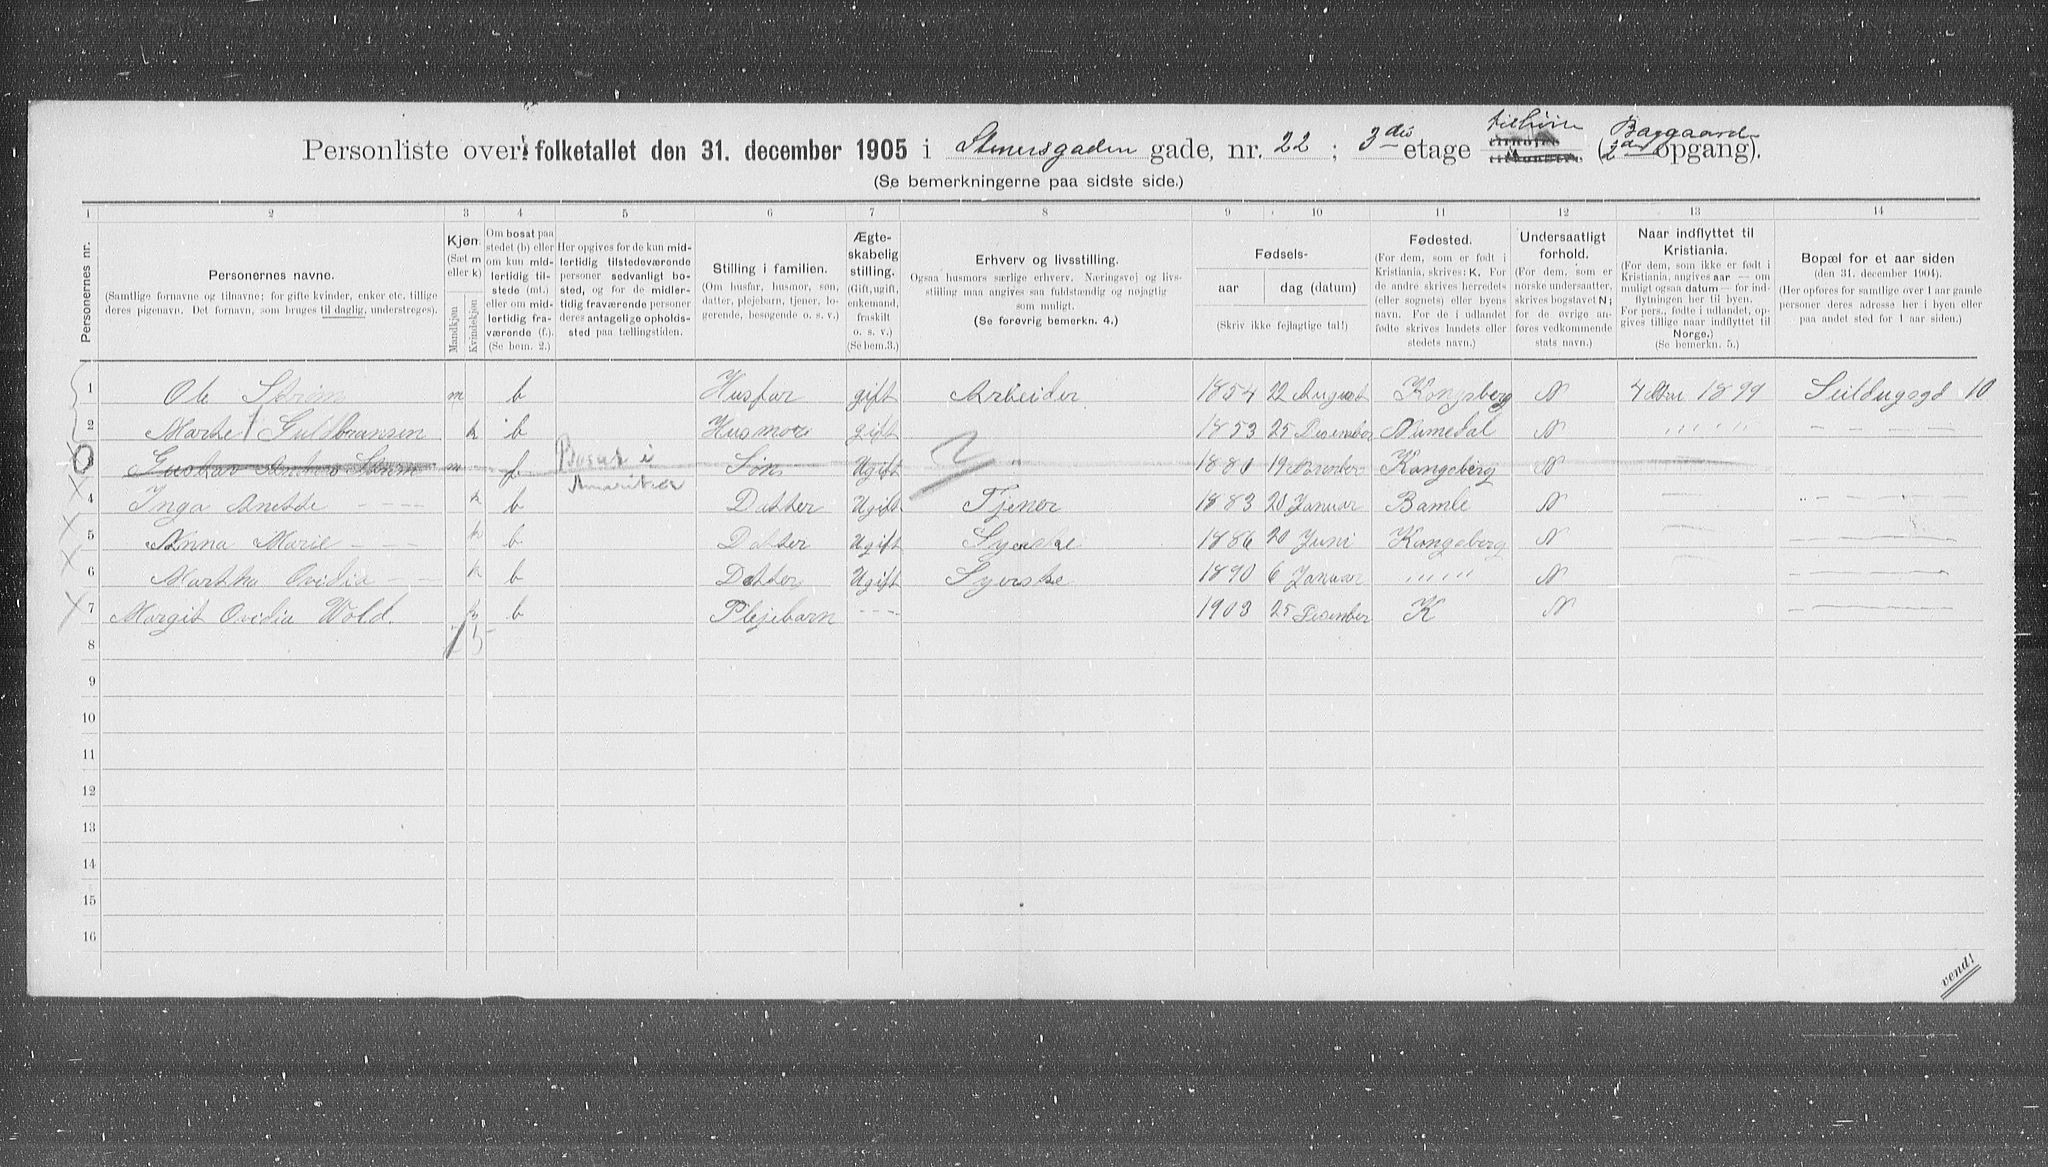 Personliste over folketallet den 31. december 1905 i Stenersgaden gade, nr. 22 ; 3die etage tilhøire (Baggaard 2den opgang).
(Se bemerkningerne paa sidste side.)
1 2 3 4 5 6 7 8 9 10 11 12 13 14
Personernes nr.
Personernes navne.
(Samtlige fornavne og tilnavne; for gifte kvinder, enker etc. tillige
deres pigenavn. Det fornavn, som bruges til daglig, understreges).
Kjøn
(Sæt m
eller k)
Mandkjøn
Kvindekjøn
Om bosat paa
stedet (b) eller
om kun mid-
lertidig til-
stede (mt.)
eller om mid-
lertidig fra-
værende (f.)
(Se bem. 2.)
Her opgives for de kun mid-
lertidig tilstedeværende
personer sedvanligt bo-
sted, og for de midler-
tidig fraværende personer
deres antagelige opholds-
sted paa tællingstiden.
Stilling i familien.
(Om husfar, husmor, søn,
datter, plejebarn, tjener, lo-
gerende, besøgende o. s. v.)
Ægte-
skabelig
stilling.
(Gift, ugift,
enkemand,
fraskilt
o. s. v.)
(Se bem.3.)
Erhverv og livsstilling.
Ogsaa husmors særlige erhverv. Næringsvej og livs-
stilling maa angives saa fuldstændig og nøjagtig
som muligt.
(Se forøvrig bemerkn. 4.)
Fødsels-
aar dag (datum)
(Skriv ikke fejlagtige tal!)
Fødested.
(For dem, som er født i
Kristiania, skrives: K. For
de andre skrives herredets
(eller sognets) eller byens
navn. For de i udlandet
fødte skrives landets eller
stedets navn.)
Undersaatligt
forhold.
(For dem, som er
norske undersaatter,
skrives bogstavet N;
for de øvrige an-
føres vedkommende
stats navn.)
Naar indflyttet til
Kristiania.
(For dem, som ikke er født i
Kristiania, angives aar — om
muligt ogsaa datum — for ind-
flytningen her til byen.
For pers., fødte i udlandet, op-
gives tillige naar indflyttet til
Norge.)
(Se bemerkn. 5.)
Bopæl for et aar siden
(den 31. december 1904).
(Her opføres for samtlige over 1 aar gamle
personer deres adresse her i byen eller
paa andet sted for 1 aar siden.)
1 Ole Strøm m b Husfar gift Arbeider 1854 22 August Kongsberg N 1899 10
2 Marte Guldbransen k b Husmor gift 1853 25 Desember Numedal N " " " "
3 Gustav Strøm m f Bosat i Amerika Søn Ugift " 1881 19 Kongsberg N
4 Inga Anette k b Datter Ugift Tjener 1883 20 Januar Bamle N
5 Anna Marie k b Datter Ugift Syerske 1886 20 Juni Kongsberg N
6 Martha Ovidia k b Datter Ugift Syerske 1890 6 Januar " " " " N
7 Margit Ovidia Wold. k b Plejebarn - - - 1903 25 Desember K N
1 5
8
9
10
11
12
13
14
15
16
vend!